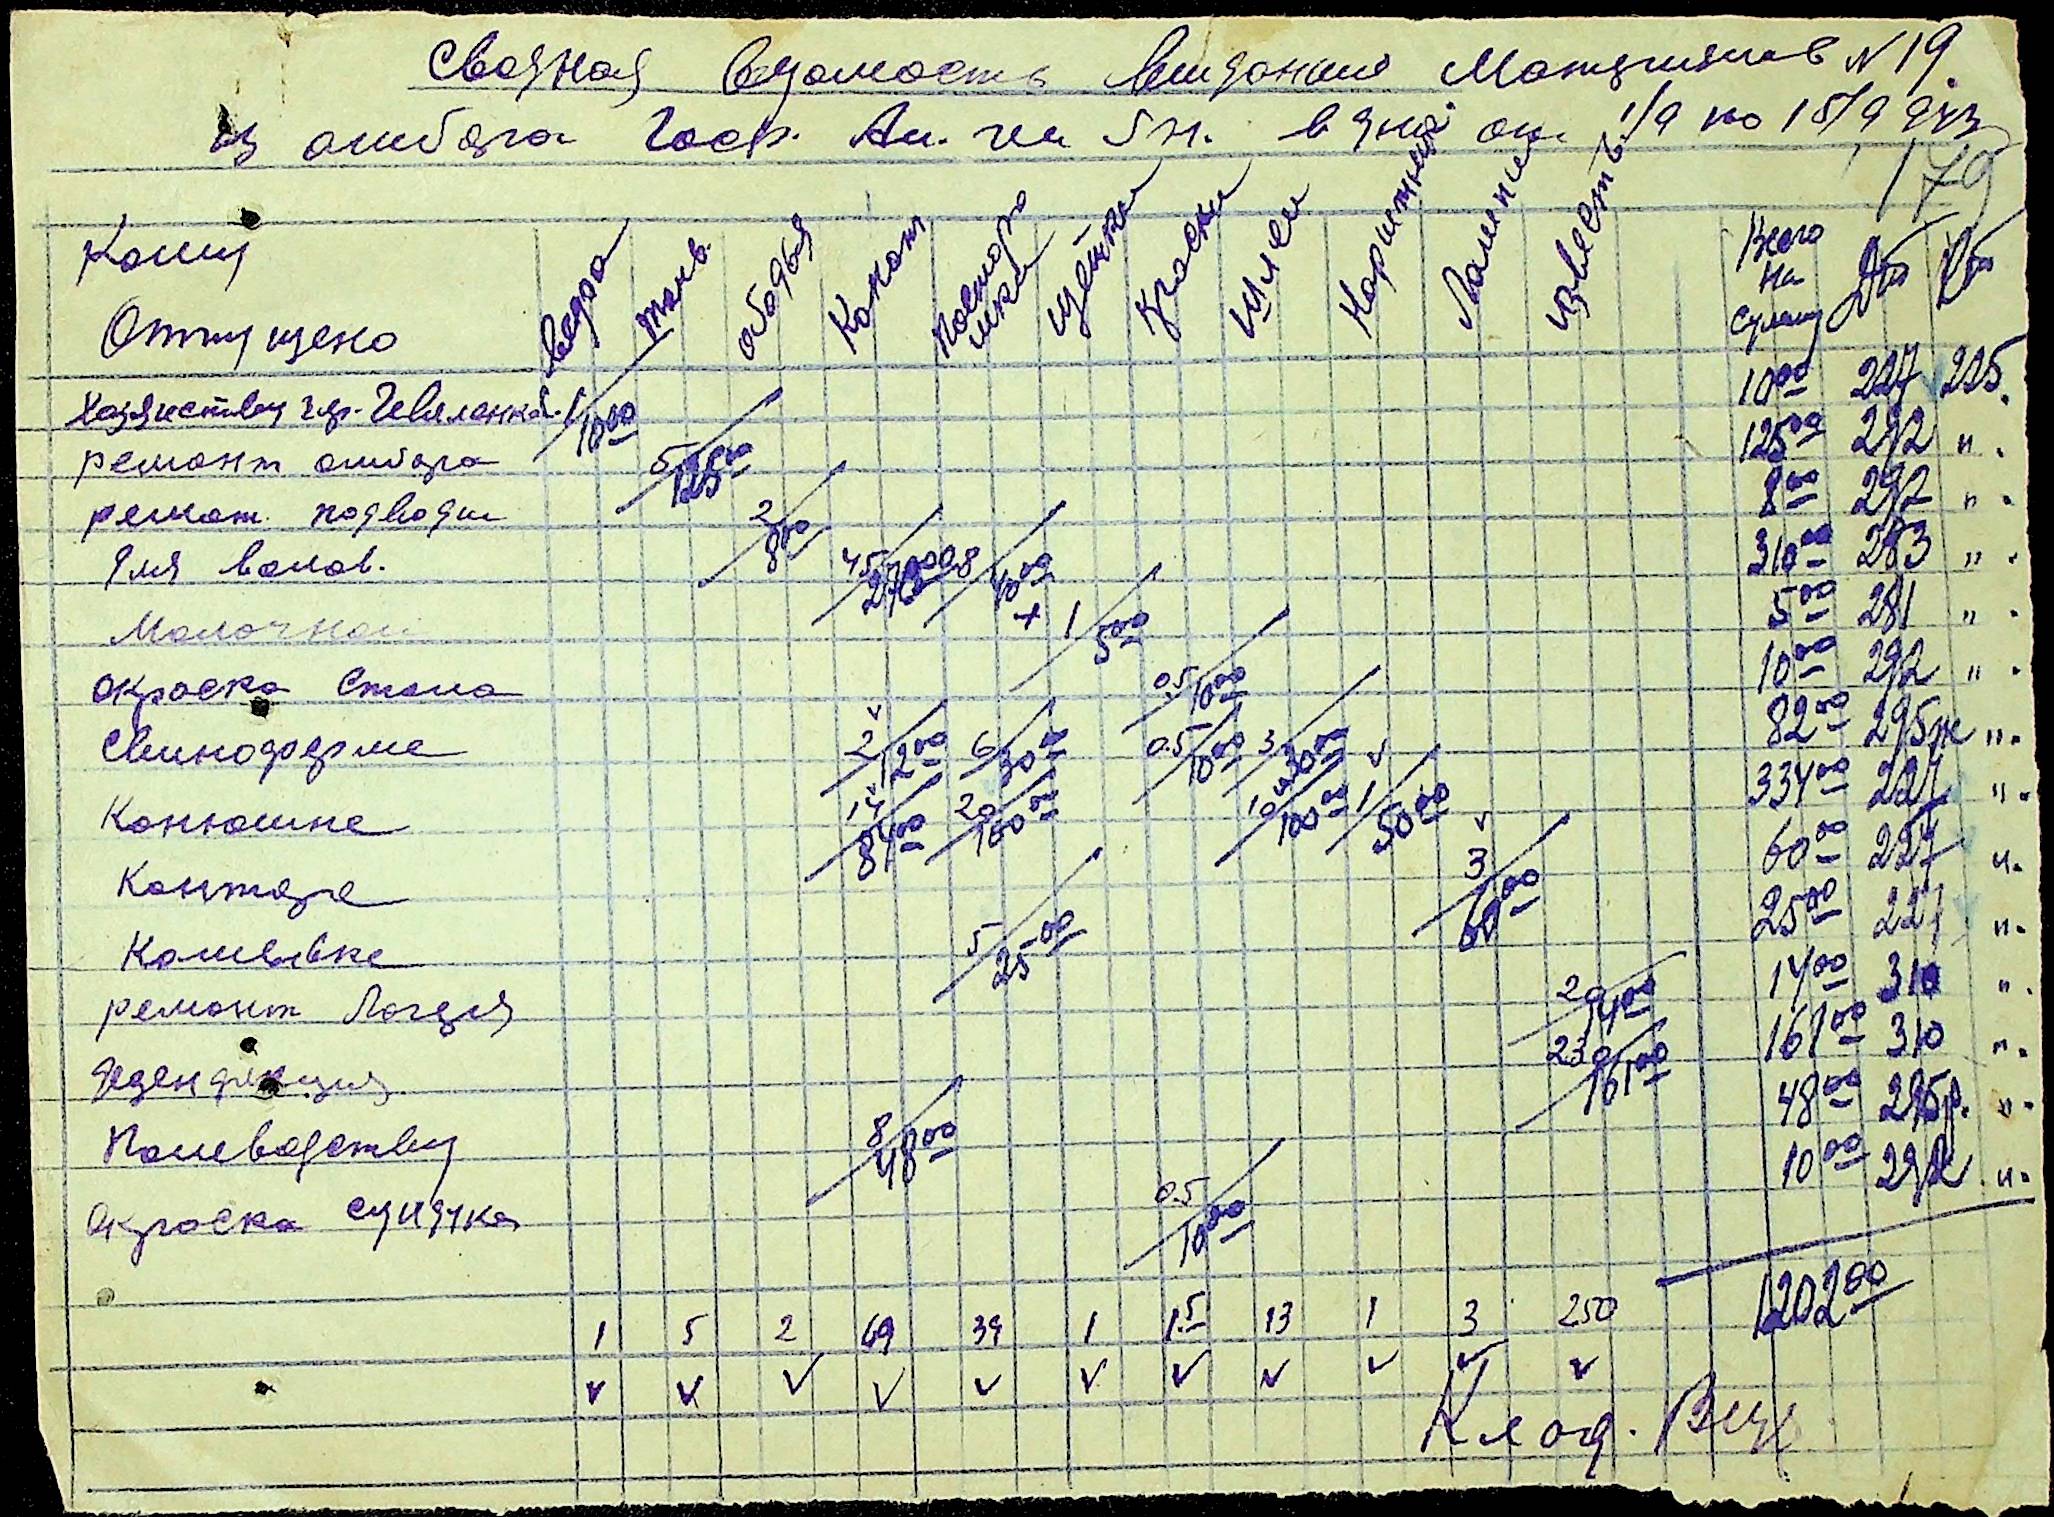 Сводная ведомость выдания Материялов N 19.
из амбара Госф. Ан. гем 5 н. в дня от 1/9 по 15/9 943
179
Кому Отпущено ведра тонв. ободья Канат Постромки щётки Краски Шлеи Наритники Лампи известь Всего На сумму Дт Кт
Хозяйству гр. 1/10 00 10 00 227 225.
ремонт амбара 5/125 00 125 00 292 " .
ремонт подводи 2/8 00 8 00 292 " .
для волов. 45/270 00 8/40 00 + 310 00 283 " .
Молочной 1/5 00 5 00 281 " .
окраска Стола 0.5/10 00 10 00 292 " .
Свиноферме 2/12 00 6/30 00 0.5/10 00 3/30 00 82 00 295ж " .
Конюшне 14/84 00 20/100 00 10/100 00 1/50 00 334 00 227 " .
Конторе 3/60 00 60 00 227 " .
5/25 00 25 00 227 " .
ремонт 20/14 00 14 00 310 " .
дезенфекция 230/161 00 161 00 310 " .
Полеводству 8/48 00 48 00 295р. " .
окраска 0.5/10 00 10 00 292 " .
1 5 2 69 39 1 1.5 13 1 3 250 1202 00
Клад.